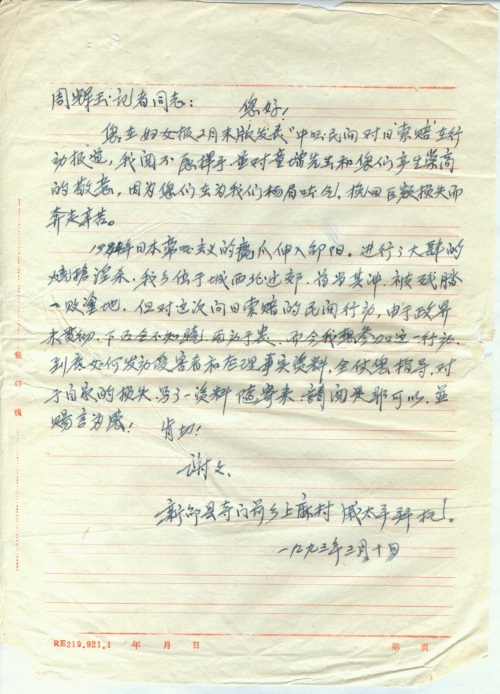 周辉玉记者同志：  您好！
您在妇女报2月末版发表“中国民间对日‘索赔’在行
动报道，我阅不忍释手，並对童增先生和您们产生崇高
的敬意，因为您们在为我们扬眉吐气，挽回巨额损失而
奔走辛苦。
1944年日本帝国主义的魔爪伸入邵阳，进行了大肆的
烧抢淫杀，我乡位于城西北近郊，首当其冲，被残踏
一败塗地，但对这次向日索赔的民间行动，由于政界
未贯彻，下面会不知晓，而今我想参加这一行动，
到底如何发动受害者和整理事实资料，全仗您指导，对
于自家的损失，写了一资料随寄来，請阅是耶可以，並
赐言为感！ 肯切！
谢谢
新邵县寺门前乡上麻村 太平拜托！
一九九三年三月十日
装订线
RE219.921.1 年 月 日 第 页